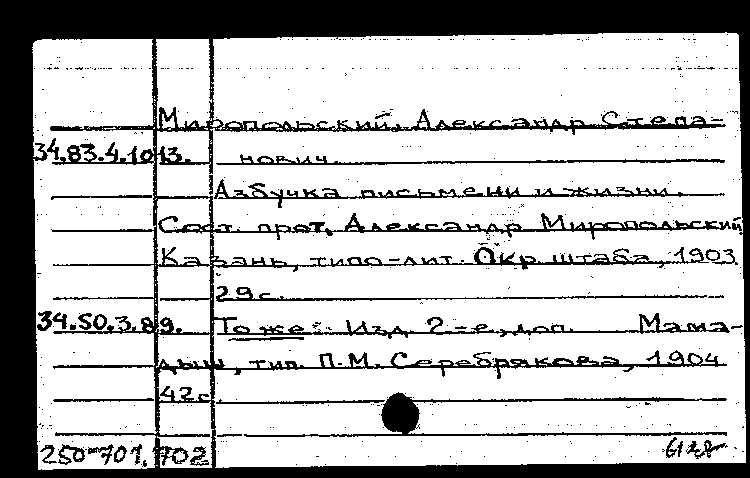 Миропольский, Александр Степа-
34.83.4.1013. нович.
Азбучка письмени и жизни.
Сост. прот. Александр Миропольский
Казань, типо-лит. Окр. штаба, 1903
29с.
34.50.3.89. То же: Изд. 2-е, доп. Мама-
дыш, тип. П.М. Серебрякова, 1904
42с
250-701.702